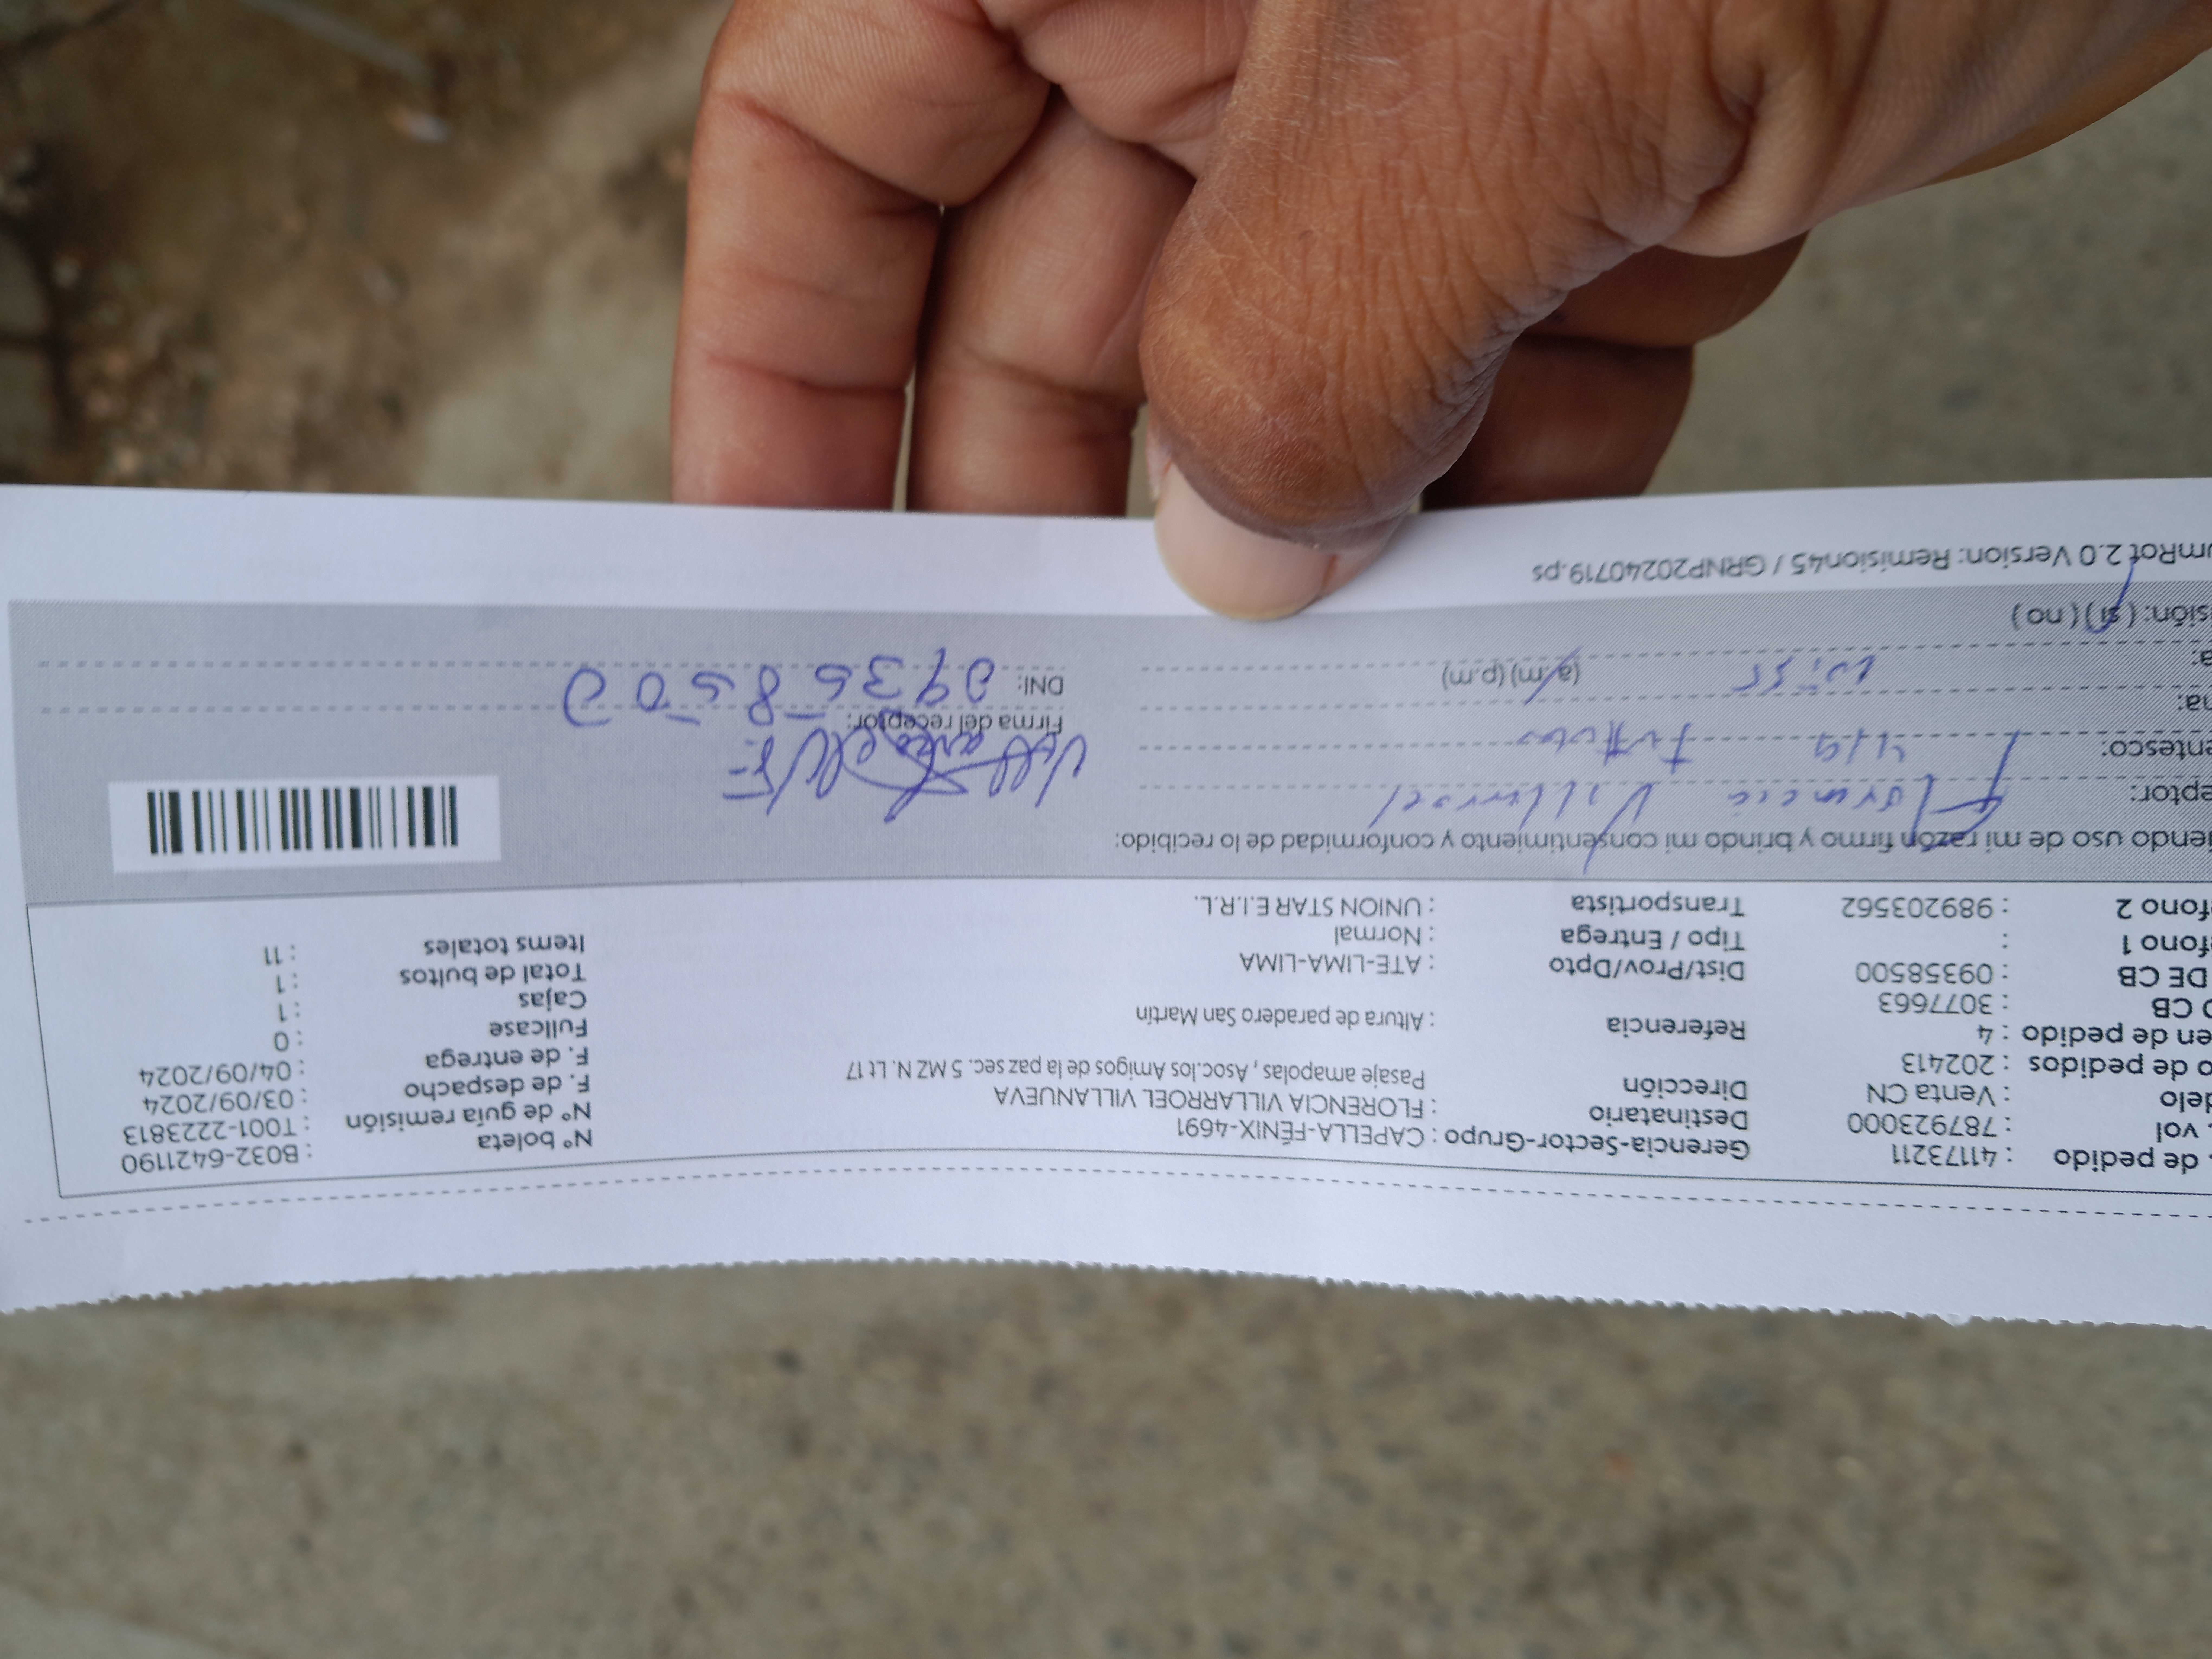 . de pedido : 41173211 Gerencia-Sector-Grupo : CAPELLA-FÉNIX-4691 Nº boleta : B032-6421190
. vol : 787923000 Destinatario : FLORENCIA VILLARROEL VILLANUEVA Nº de guía remisión : T001-2223813
delo : Venta CN Dirección Pasaje amapolas , Asoc.los Amigos de la paz sec. 5 MZ N. Lt 17 F. de despacho : 03/09/2024
o de pedidos : 202413 F. de entrega : 04/09/2024
en de pedido : 4 Referencia : Altura de paradero San Martín Fullcase : 0
O CB : 3077663 Cajas : 1
DE CB : 09358500 Dist/Prov/Dpto : ATE-LIMA-LIMA Total de bultos : 1
éfono 1 : Tipo / Entrega : Normal Items totales : 11
éfono 2 : 989203562 Transportista : UNION STAR E.I.R.L.
iendo uso de mi razón firmo y brindo mi consentimiento y conformidad de lo recibido:
eptor: Florencia Villarroel
entesco: Titular Firma del receptor:
na: 4/9
a: 10:55 (a.m) (p.m) DNI: 09358500
isión: ( si ) ( no )
umRot 2.0 Version: Remision45 / GRNP20240719.ps